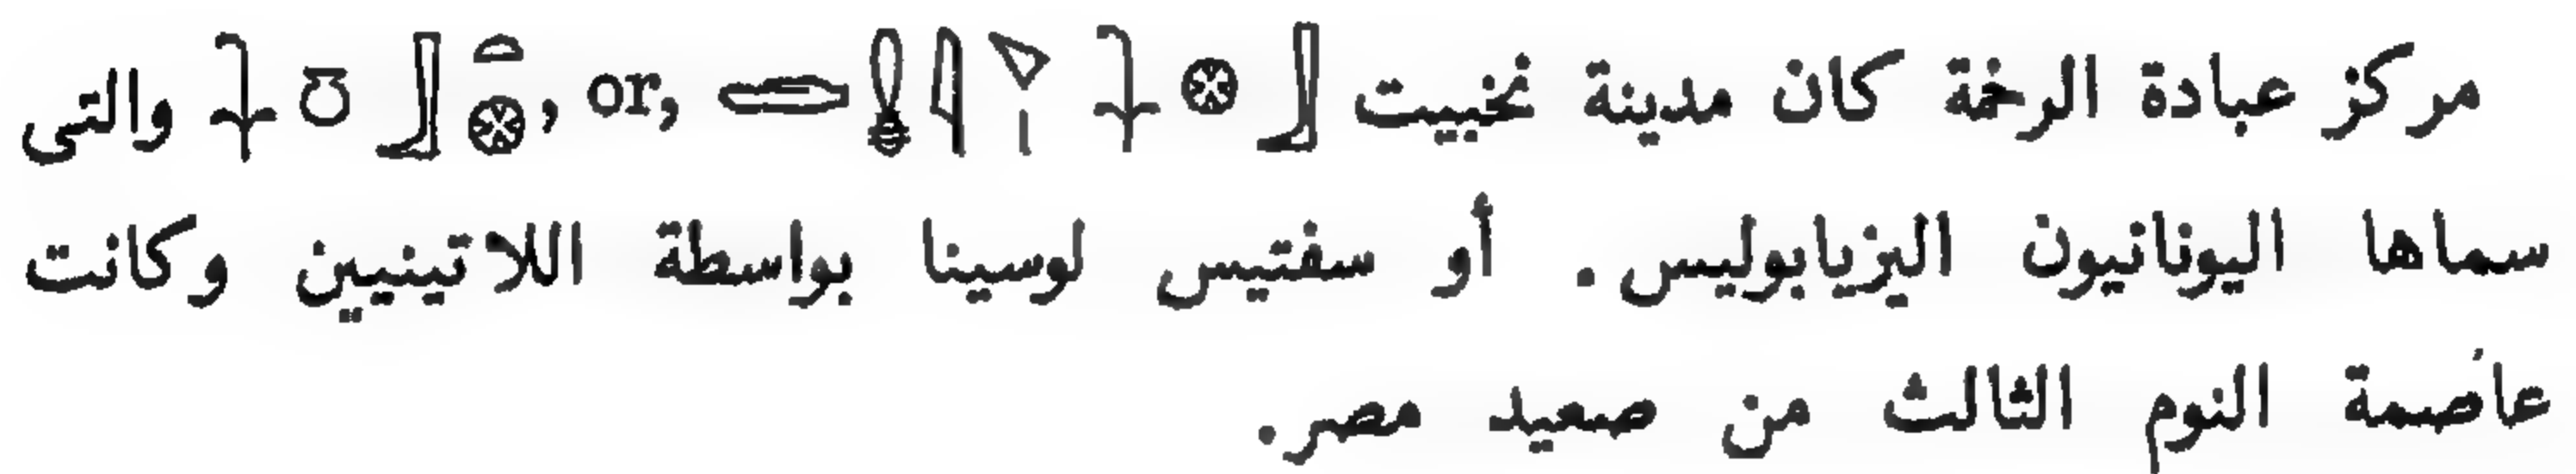 مركز عبادة الرخمة كان مدينة نخبيت 𓇓𓏌𓃀𓏏𓊖, or, والتى
سماها اليونانيون اليزيابوليس. أو سفتيس لوسينا بواسطة اللاتينيين وكانت
عاصمة النوم الثالث من صعيد مصر.